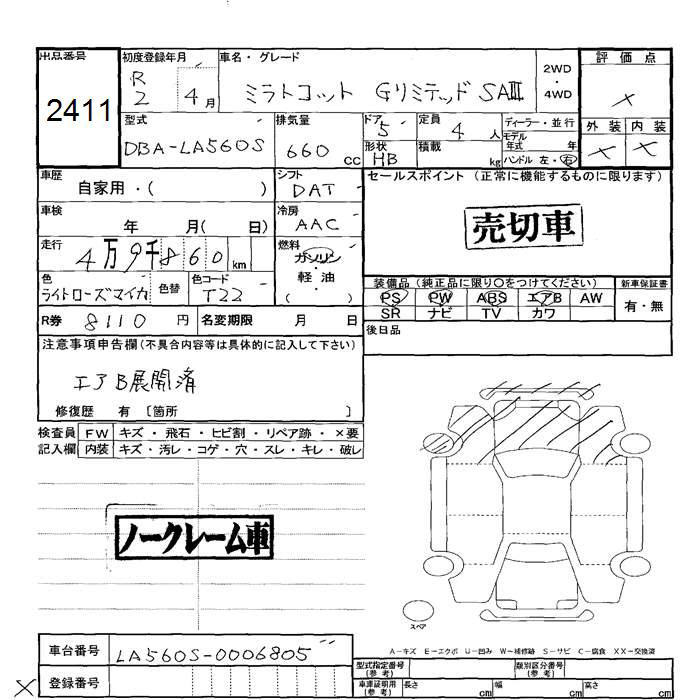 出品番号 初度登録年月 車名・グレード 評価点
2411 R2 4月 ミラトコット GリミテッドSAⅢ 2WD・4WD ×
型式 排気量 ドア 5 定員 4人 ディーラー・並行 外装 内装
DBA-LA560S 660cc 形状 HB 積載 kg モデル年式 年 × ×
ハンドル 左・右
車歴 自家用・( ) シフト DAT セールスポイント (正常に機能するものに限ります)
車検 年 月( 日) 冷房 AAC 売切車
走行 4万9千860km 燃料 ガソリン・軽油( )
色 ライトローズマイカ 色替 色コード T22
装備品(純正品に限り○をつけてください) 新車保証書
PS PW ABS エアB AW 有・無
SR ナビ TV カワ
R券 8110円 名変期限 月 日 後日品
注意事項申告欄(不具合内容等は具体的に記入して下さい)
エアB展開済
修復歴 有 〔箇所 〕
検査員 FW キズ・飛石・ヒビ割・リペア跡・×要
記入欄 内装 キズ・汚レ・コゲ・穴・スレ・キレ・破レ
ノークレーム車
スペア
A-キズ E-エクボ U-凹み W-補修跡 S-サビ C-腐食 XX-交換済
車台番号 LA560S-0006805
型式指定番号(参考) 類別区分番号(参考)
× 登録番号 車庫証明用(参考) 長さ cm 幅 cm 高さ cm